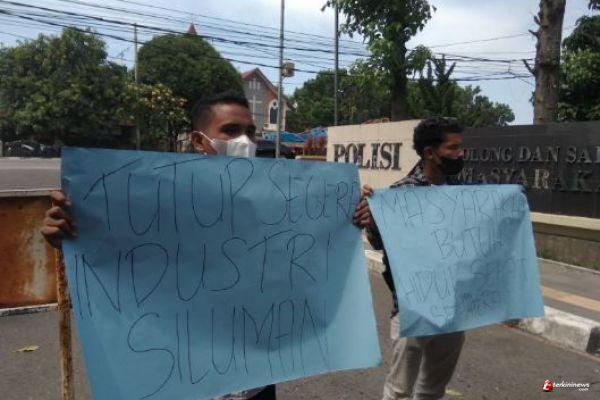 POLISI
OLONG DAN SA
MASYARAKA
TUTUP SEGERA
INDUSTRI
SILUMAN
MASYARAKAT
BUTUH
HIDUP SEHAT
terkininews
.com